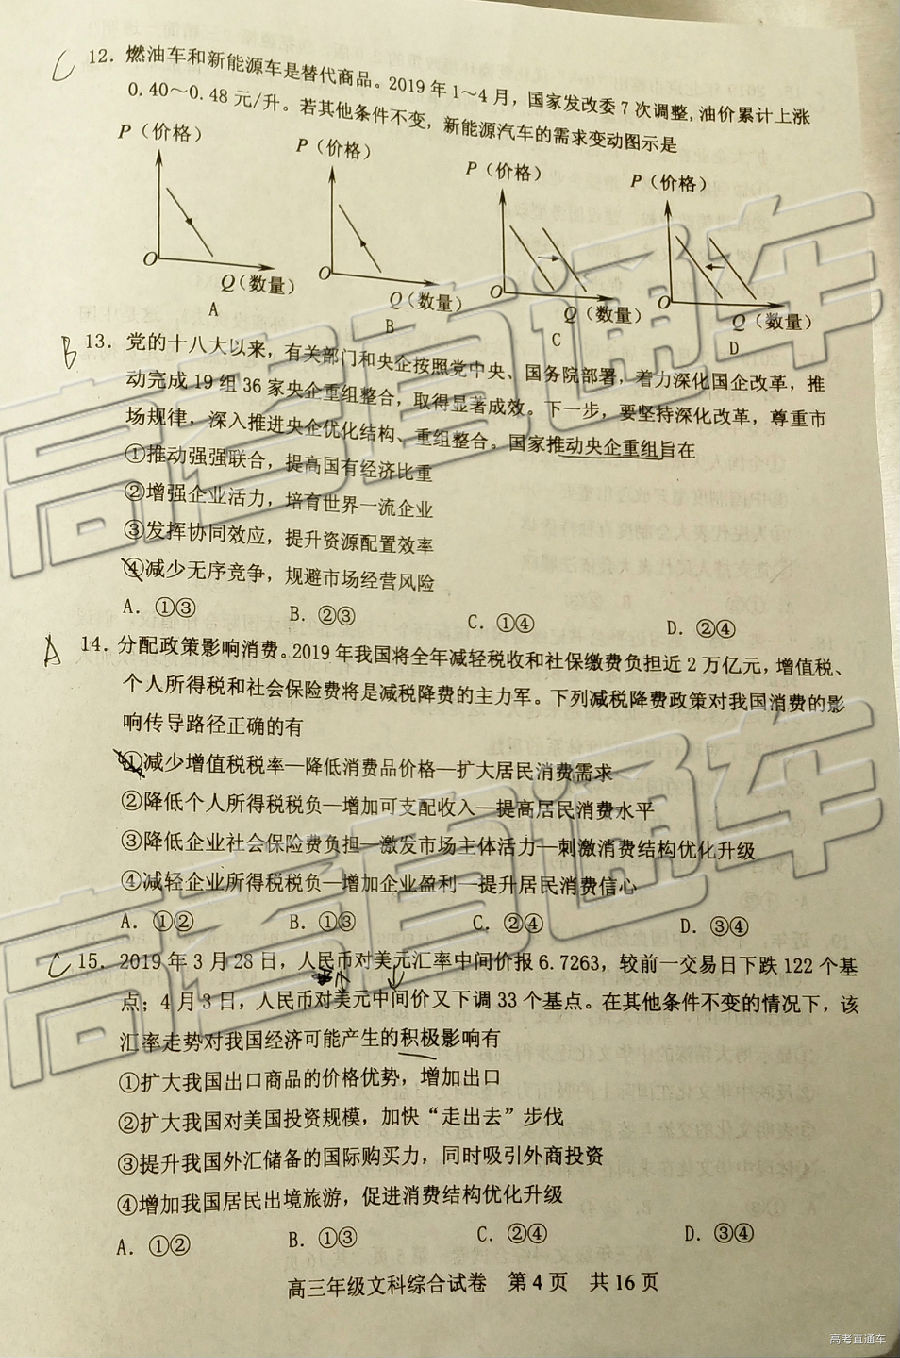 C 12. 燃油车和新能源车是替代商品。2019年1～4月，国家发改委7次调整，油价累计上涨
0.40～0.48元/升。若其他条件不变，新能源汽车的需求变动图示是
P（价格） P（价格） P（价格） P（价格）
O O O O
Q（数量） Q（数量） Q（数量） Q（数量）
A B C D
B 13. 党的十八大以来，有关部门和央企按照党中央、国务院部署，着力深化国企改革，推
动完成19组36家央企重组整合，取得显著成效。下一步，要坚持深化改革，尊重市
场规律，深入推进央企优化结构、重组整合。国家推动央企重组旨在
①推动强强联合，提高国有经济比重
②增强企业活力，培育世界一流企业
③发挥协同效应，提升资源配置效率
④减少无序竞争，规避市场经营风险
A．①③ B．②③ C．①④ D．②④
A 14. 分配政策影响消费。2019年我国将全年减轻税收和社保缴费负担近2万亿元，增值税、
个人所得税和社会保险费将是减税降费的主力军。下列减税降费政策对我国消费的影
响传导路径正确的有
①减少增值税税率—降低消费品价格—扩大居民消费需求
②降低个人所得税税负—增加可支配收入—提高居民消费水平
③降低企业社会保险费负担—激发市场主体活力—刺激消费结构优化升级
④减轻企业所得税税负—增加企业盈利—提升居民消费信心
A．①② B．①③ C．②④ D．③④
C 15. 2019年3月28日，人民币对美元汇率中间价报6.7263，较前一交易日下跌122个基
点；4月3日，人民币对美元中间价又下调33个基点。在其他条件不变的情况下，该
汇率走势对我国经济可能产生的积极影响有
①扩大我国出口商品的价格优势，增加出口
②扩大我国对美国投资规模，加快“走出去”步伐
③提升我国外汇储备的国际购买力，同时吸引外商投资
④增加我国居民出境旅游，促进消费结构优化升级
A．①② B．①③ C．②④ D．③④
高三年级文科综合试卷 第4页 共16页
高考直通车
高考直通车
高考直通车